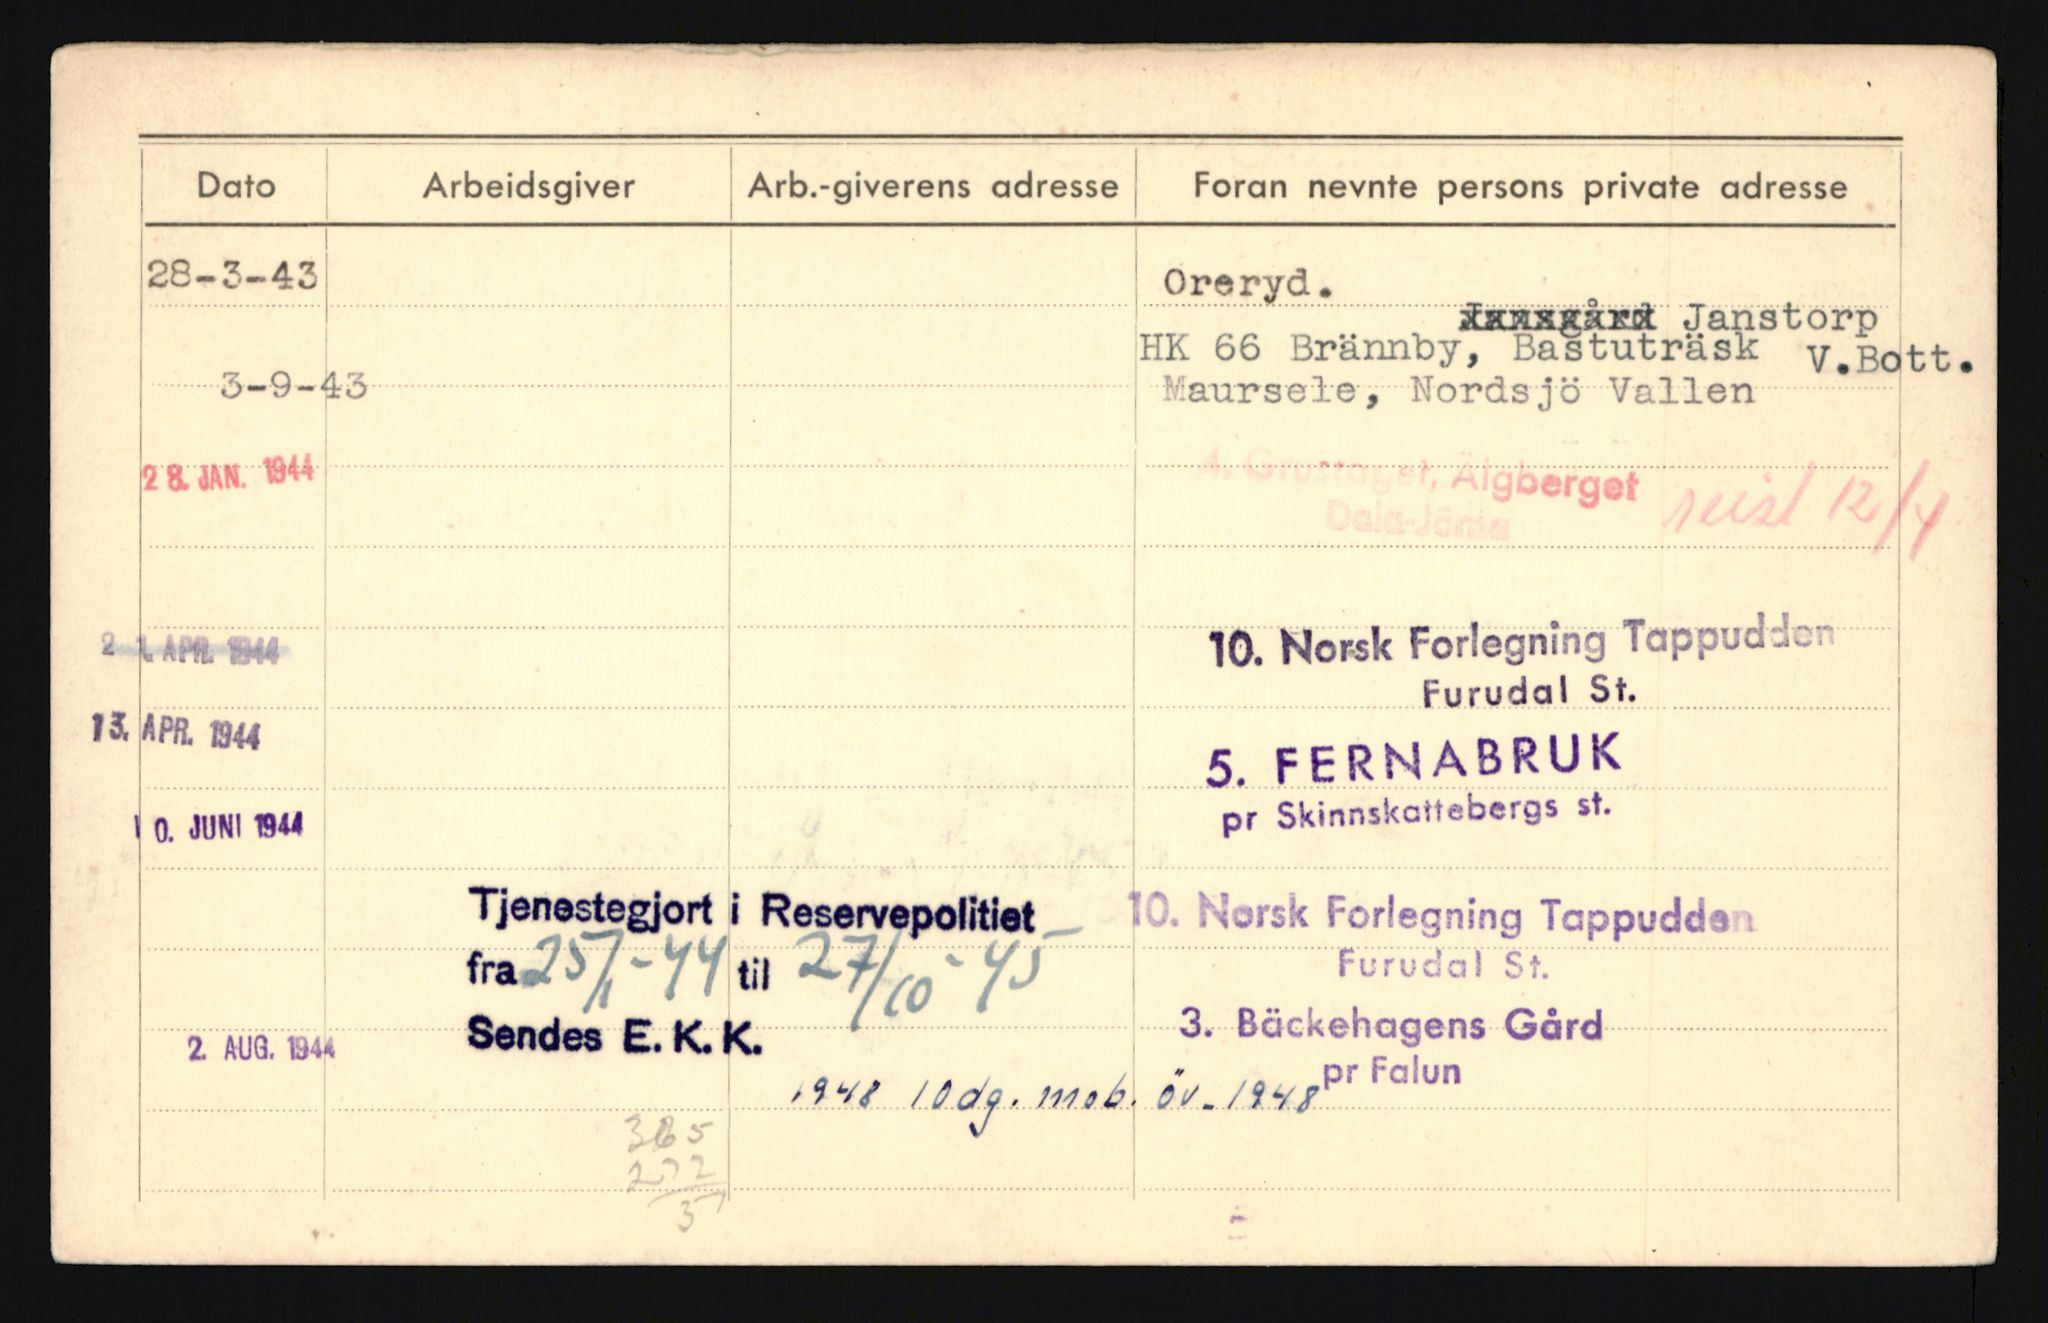 Dato Arbeidsgiver Arb.-giverens adresse Foran nevnte persons private adresse
28-3-43 Oreryd.
Janstorp
HK 66 Brännby, Bastuträsk V.Bott.
3-9-43 Maursele, Nordsjö Vallen
28. JAN. 1944 4. Grustaget, Älgberget reist 12/4
Dala-Järna
21. APR. 1944 10. Norsk Forlegning Tappudden
Furudal St.
13. APR. 1944 5. FERNABRUK
pr Skinnskattebergs st.
10. JUNI 1944
Tjenestegjort i Reservepolitiet 10. Norsk Forlegning Tappudden
fra 25/1-44 til 27/10-45 Furudal St.
Sendes E. K. K. 3. Bäckehagens Gård
2. AUG. 1944 pr Falun
1948 10 dg. mob. öv. 1948
365
272